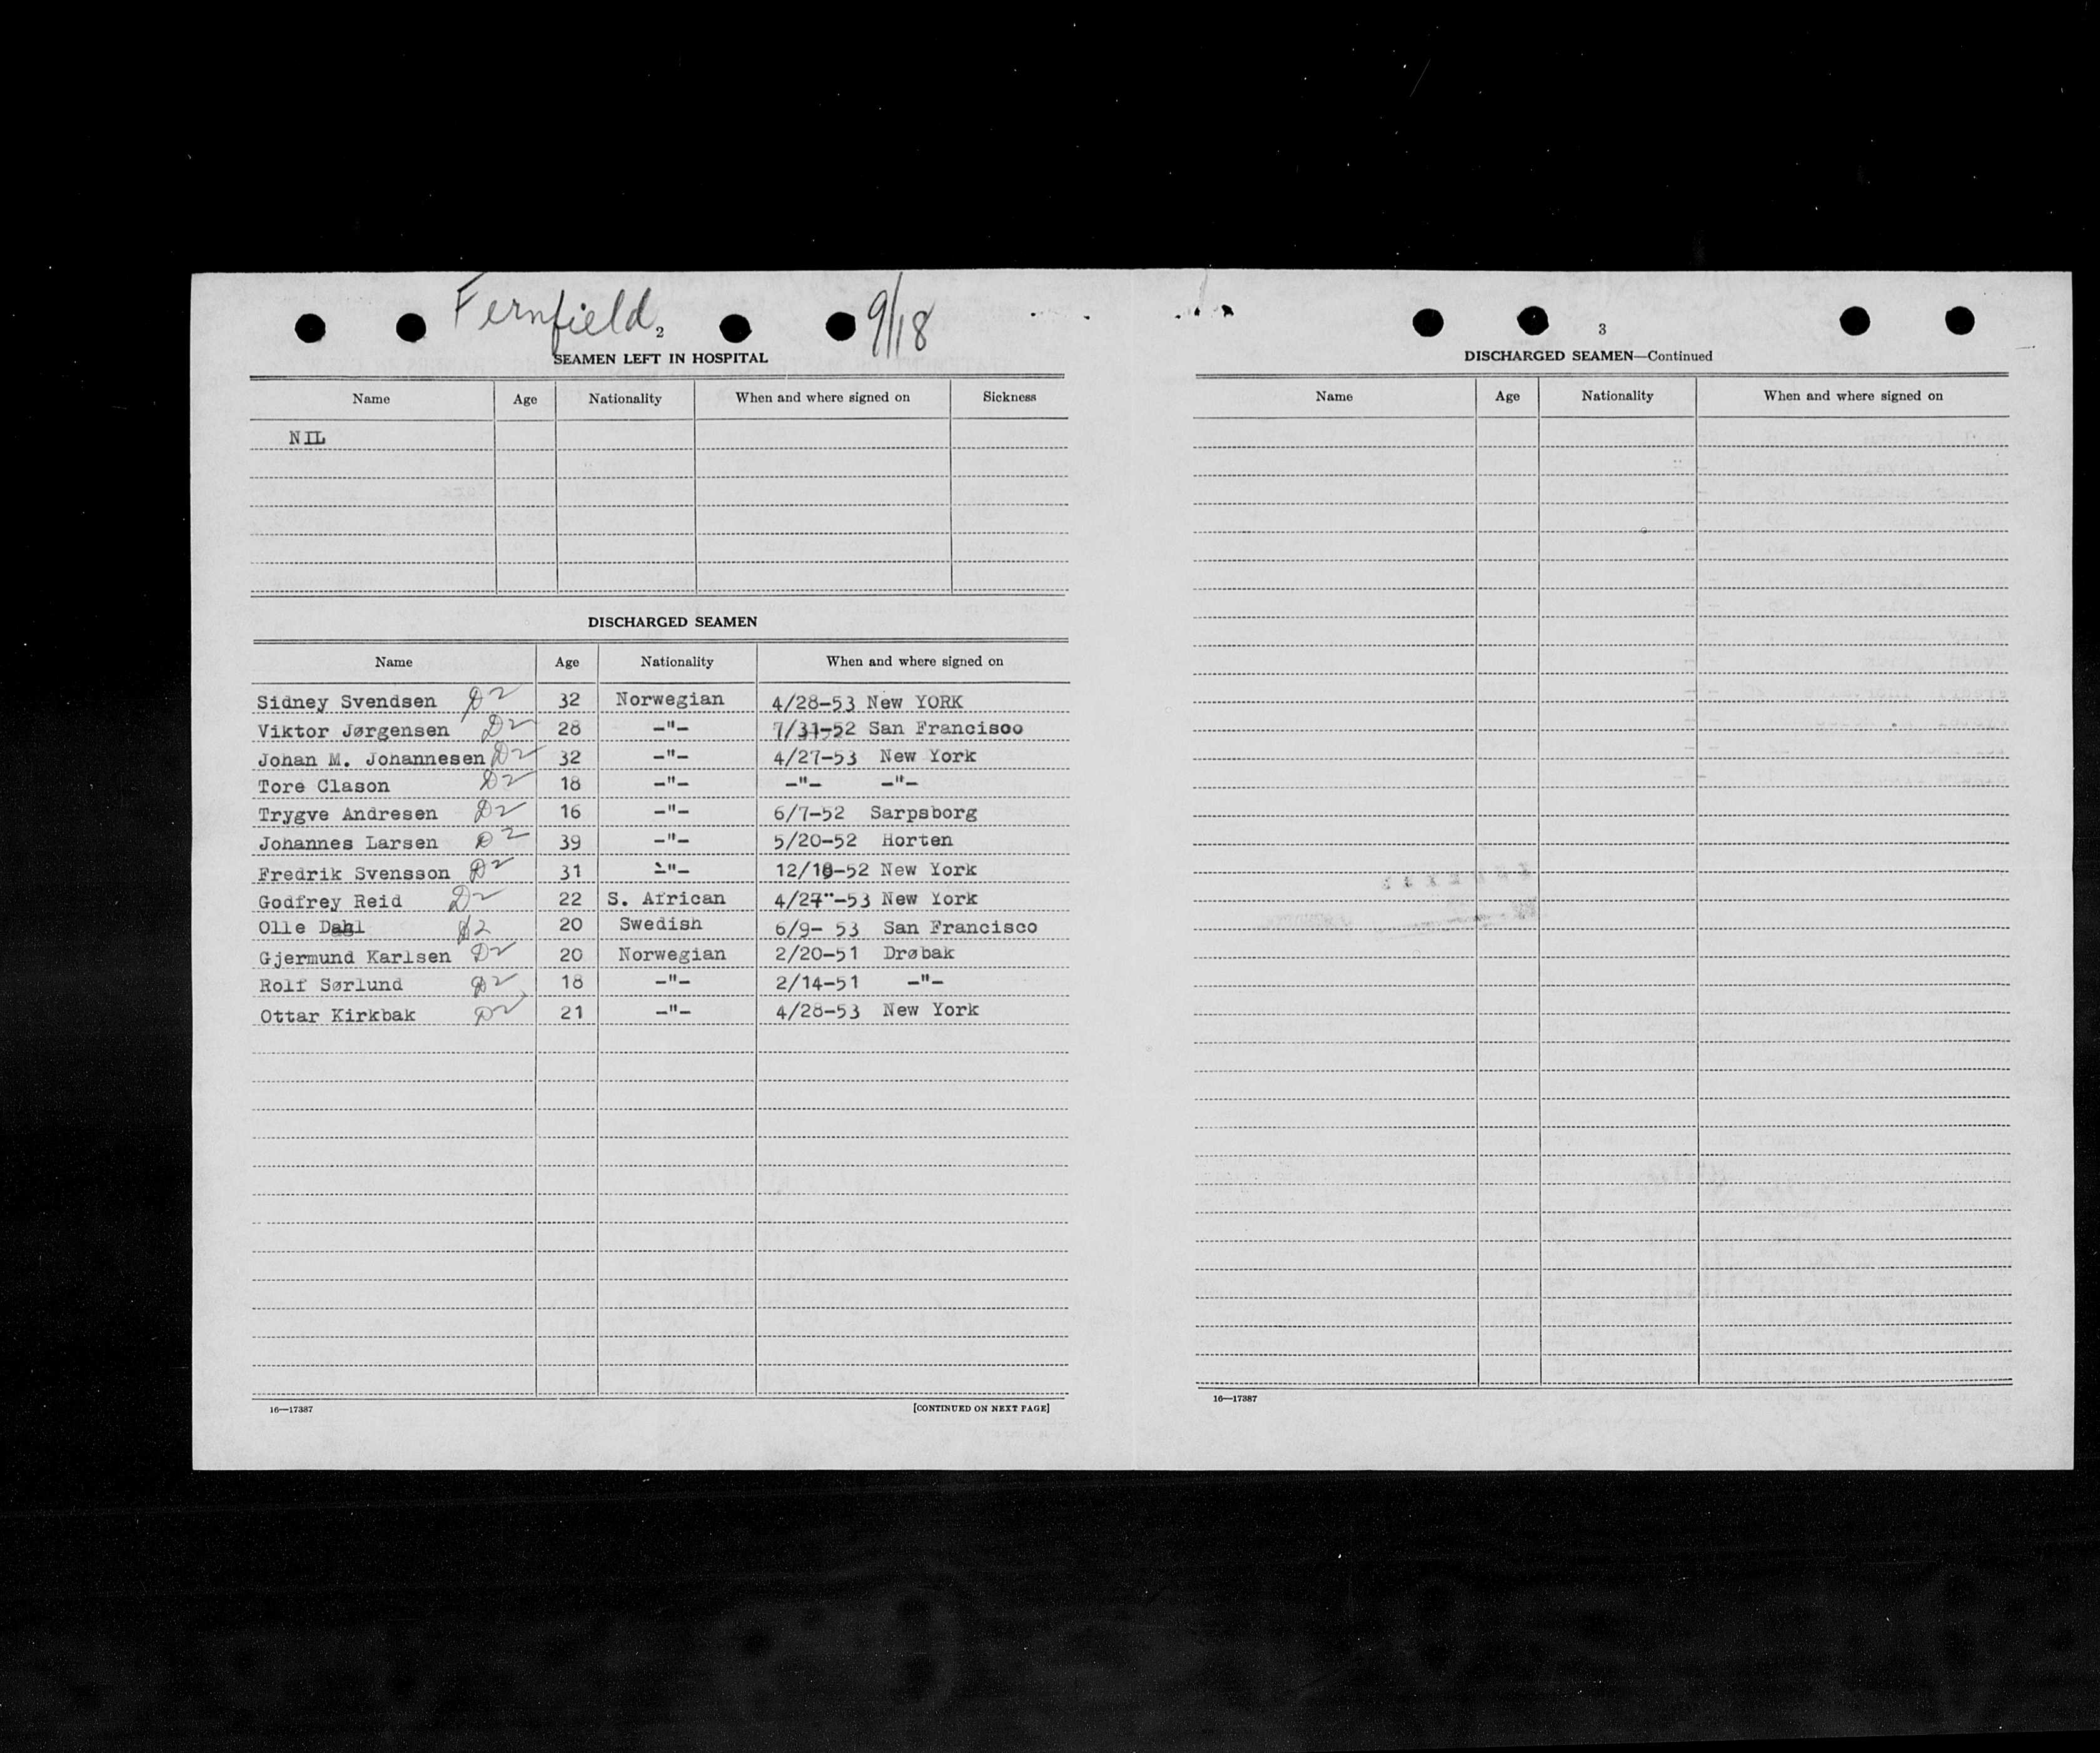 Fernfield 9/18
2
SEAMEN LEFT IN HOSPITAL
Name Age Nationality When and where signed on Sickness
NIL
DISCHARGED SEAMEN
Name Age Nationality When and where signed on
Sidney Svendsen D2 32 Norwegian 4/28-53 New YORK
Viktor Jørgensen D2 28 -"- 7/31-52 San Francisco
Johan M. Johannesen D2 32 -"- 4/27-53 New York
Tore Clason D2 18 -"- -"- -"-
Trygve Andresen D2 16 -"- 6/7-52 Sarpsborg
Johannes Larsen D2 39 -"- 5/20-52 Horten
Fredrik Svensson D2 31 -"- 12/18-52 New York
Godfrey Reid D2 22 S. African 4/27-53 New York
Olle Dahl D2 20 Swedish 6/9- 53 San Francisco
Gjermund Karlsen D2 20 Norwegian 2/20-51 Drøbak
Rolf Sørlund D2 18 -"- 2/14-51 -"-
Ottar Kirkbak D2 21 -"- 4/28-53 New York
16—17387 [CONTINUED ON NEXT PAGE]
3
DISCHARGED SEAMEN—Continued
Name Age Nationality When and where signed on
16—17387